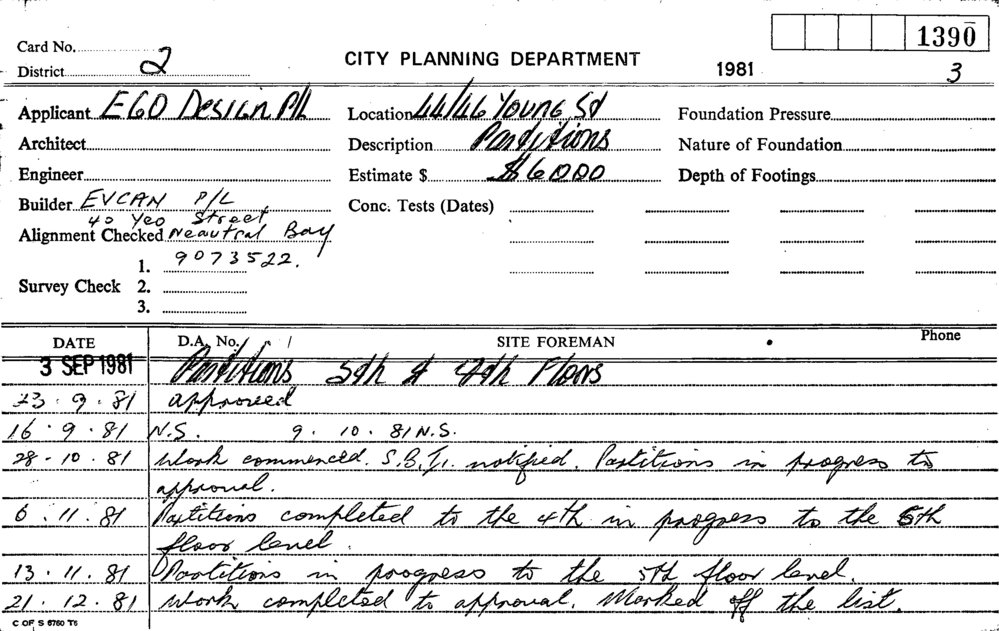 1390
Card No.
District 2
CITY PLANNING DEPARTMENT
1981
3
Applicant EGO Design P/L
Location 44/46 Young St
Foundation Pressure
Architect
Description Partitions
Nature of Foundation
Engineer
Estimate $ $6000
Depth of Footings
Builder EVCAN P/L
40 Yeo Street
Conc. Tests (Dates)
Alignment Checked Neautral Bay
1. 9073522.
Survey Check 2.
3.
DATE D.A. No. SITE FOREMAN Phone
3 SEP 1981 Partitions 5th & 4th Floors
23.9.81 approved
16.9.81 N.S. 9.10.81 N.S.
28.10.81 Work commenced. S.B.I. notified. Partitions in progress to
approval.
6.11.81 Partitions completed to the 4th in progress to the 5th
floor level.
13.11.81 Partitions in progress to the 5th floor level.
21.12.81 Work completed to approval. Marked off the list.
C OF S 6760 T6